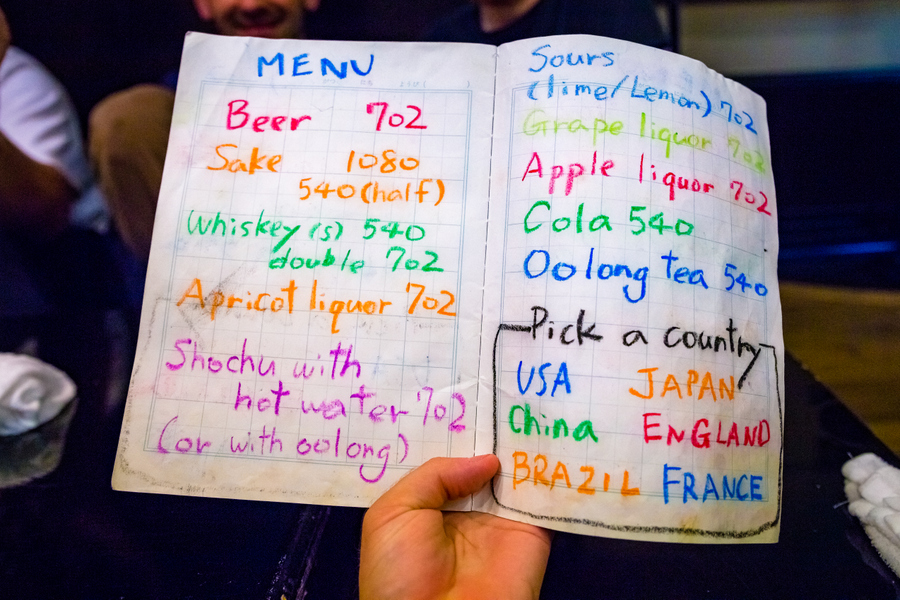 MENU
Beer 702
Sake 1080
540 (half)
Whiskey (s) 540
double 702
Apricot liquor 702
Shochu with
hot water 702
(or with oolong)
Sours
(lime/Lemon) 702
Grape liquor 702
Apple liquor 702
Cola 540
Oolong tea 540
Pick a country
USA JAPAN
China ENGLAND
BRAZIL FRANCE